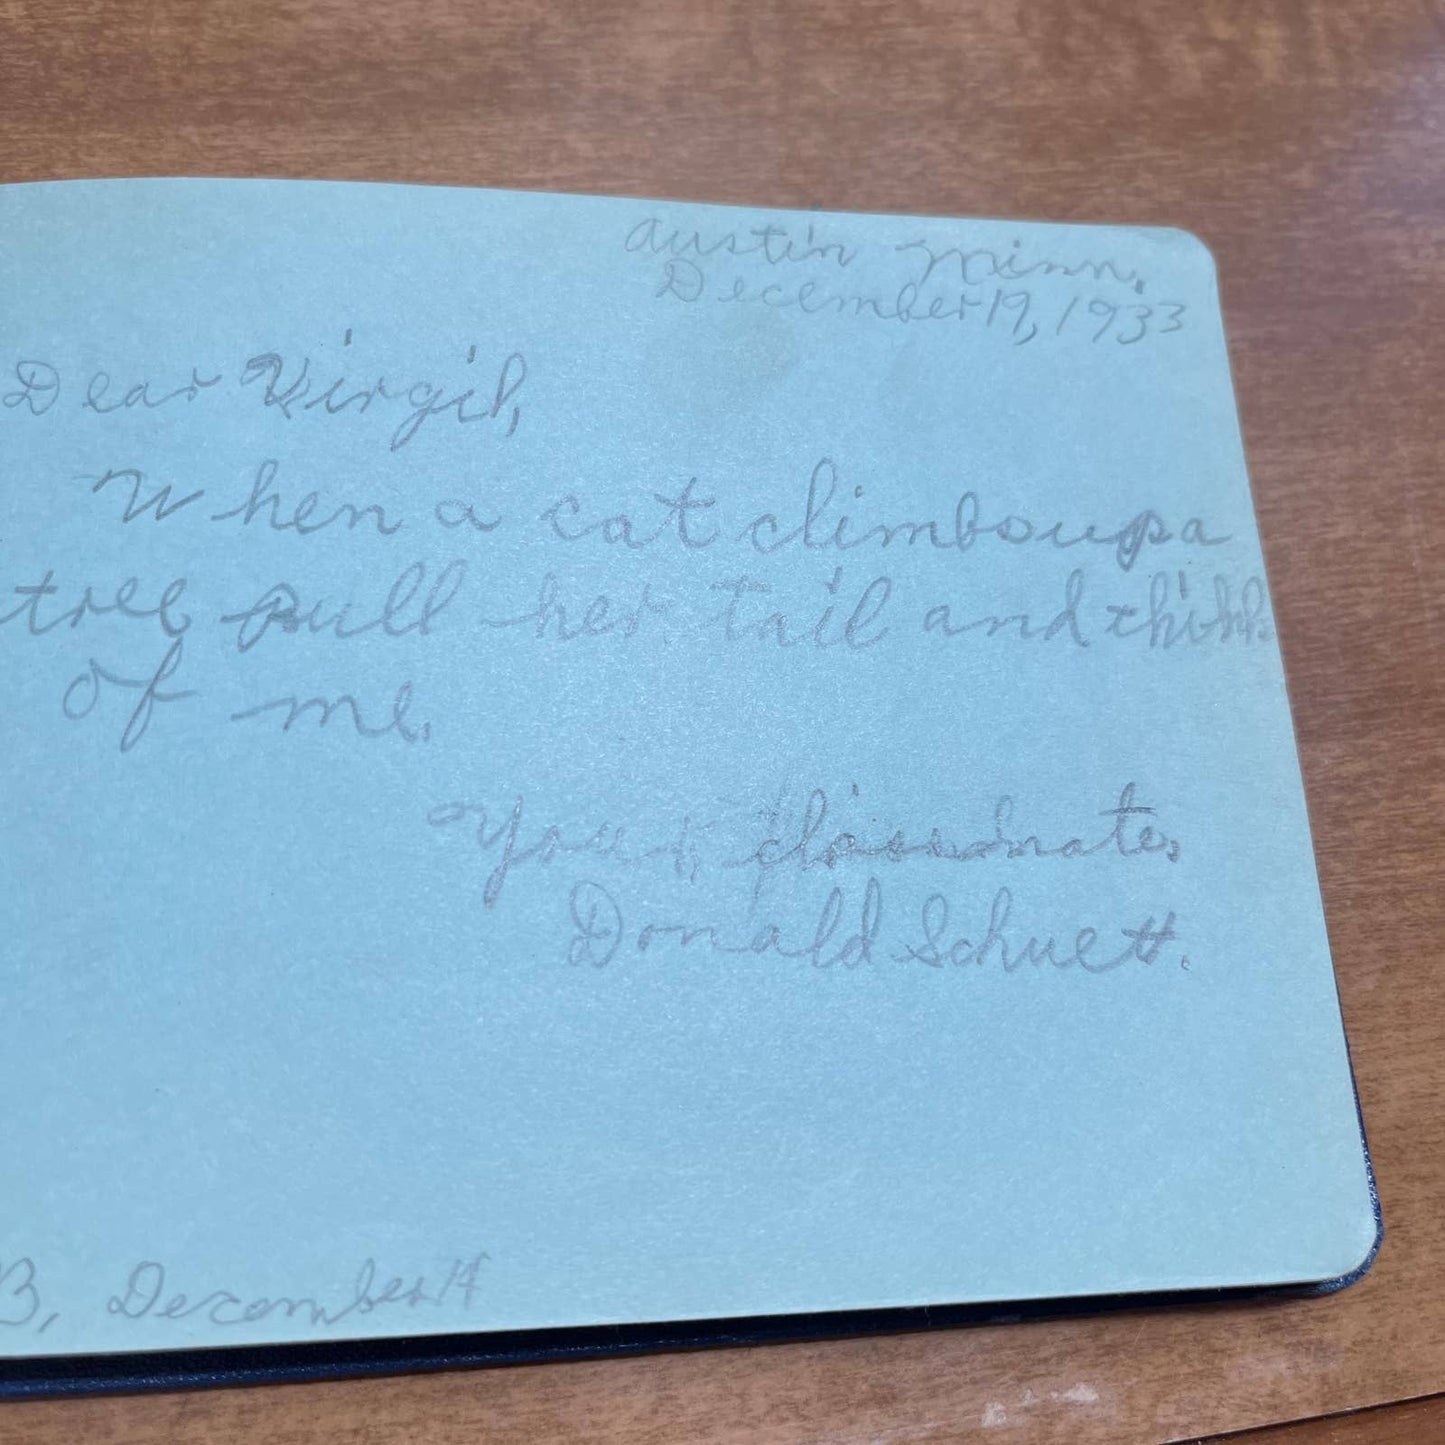 Austin Minn,
December 19, 1933
Dear Virgil,
When a cat climbs up a
tree pull her tail and think
of me.
Your classmate,
Donald Schuett.
3, December 14